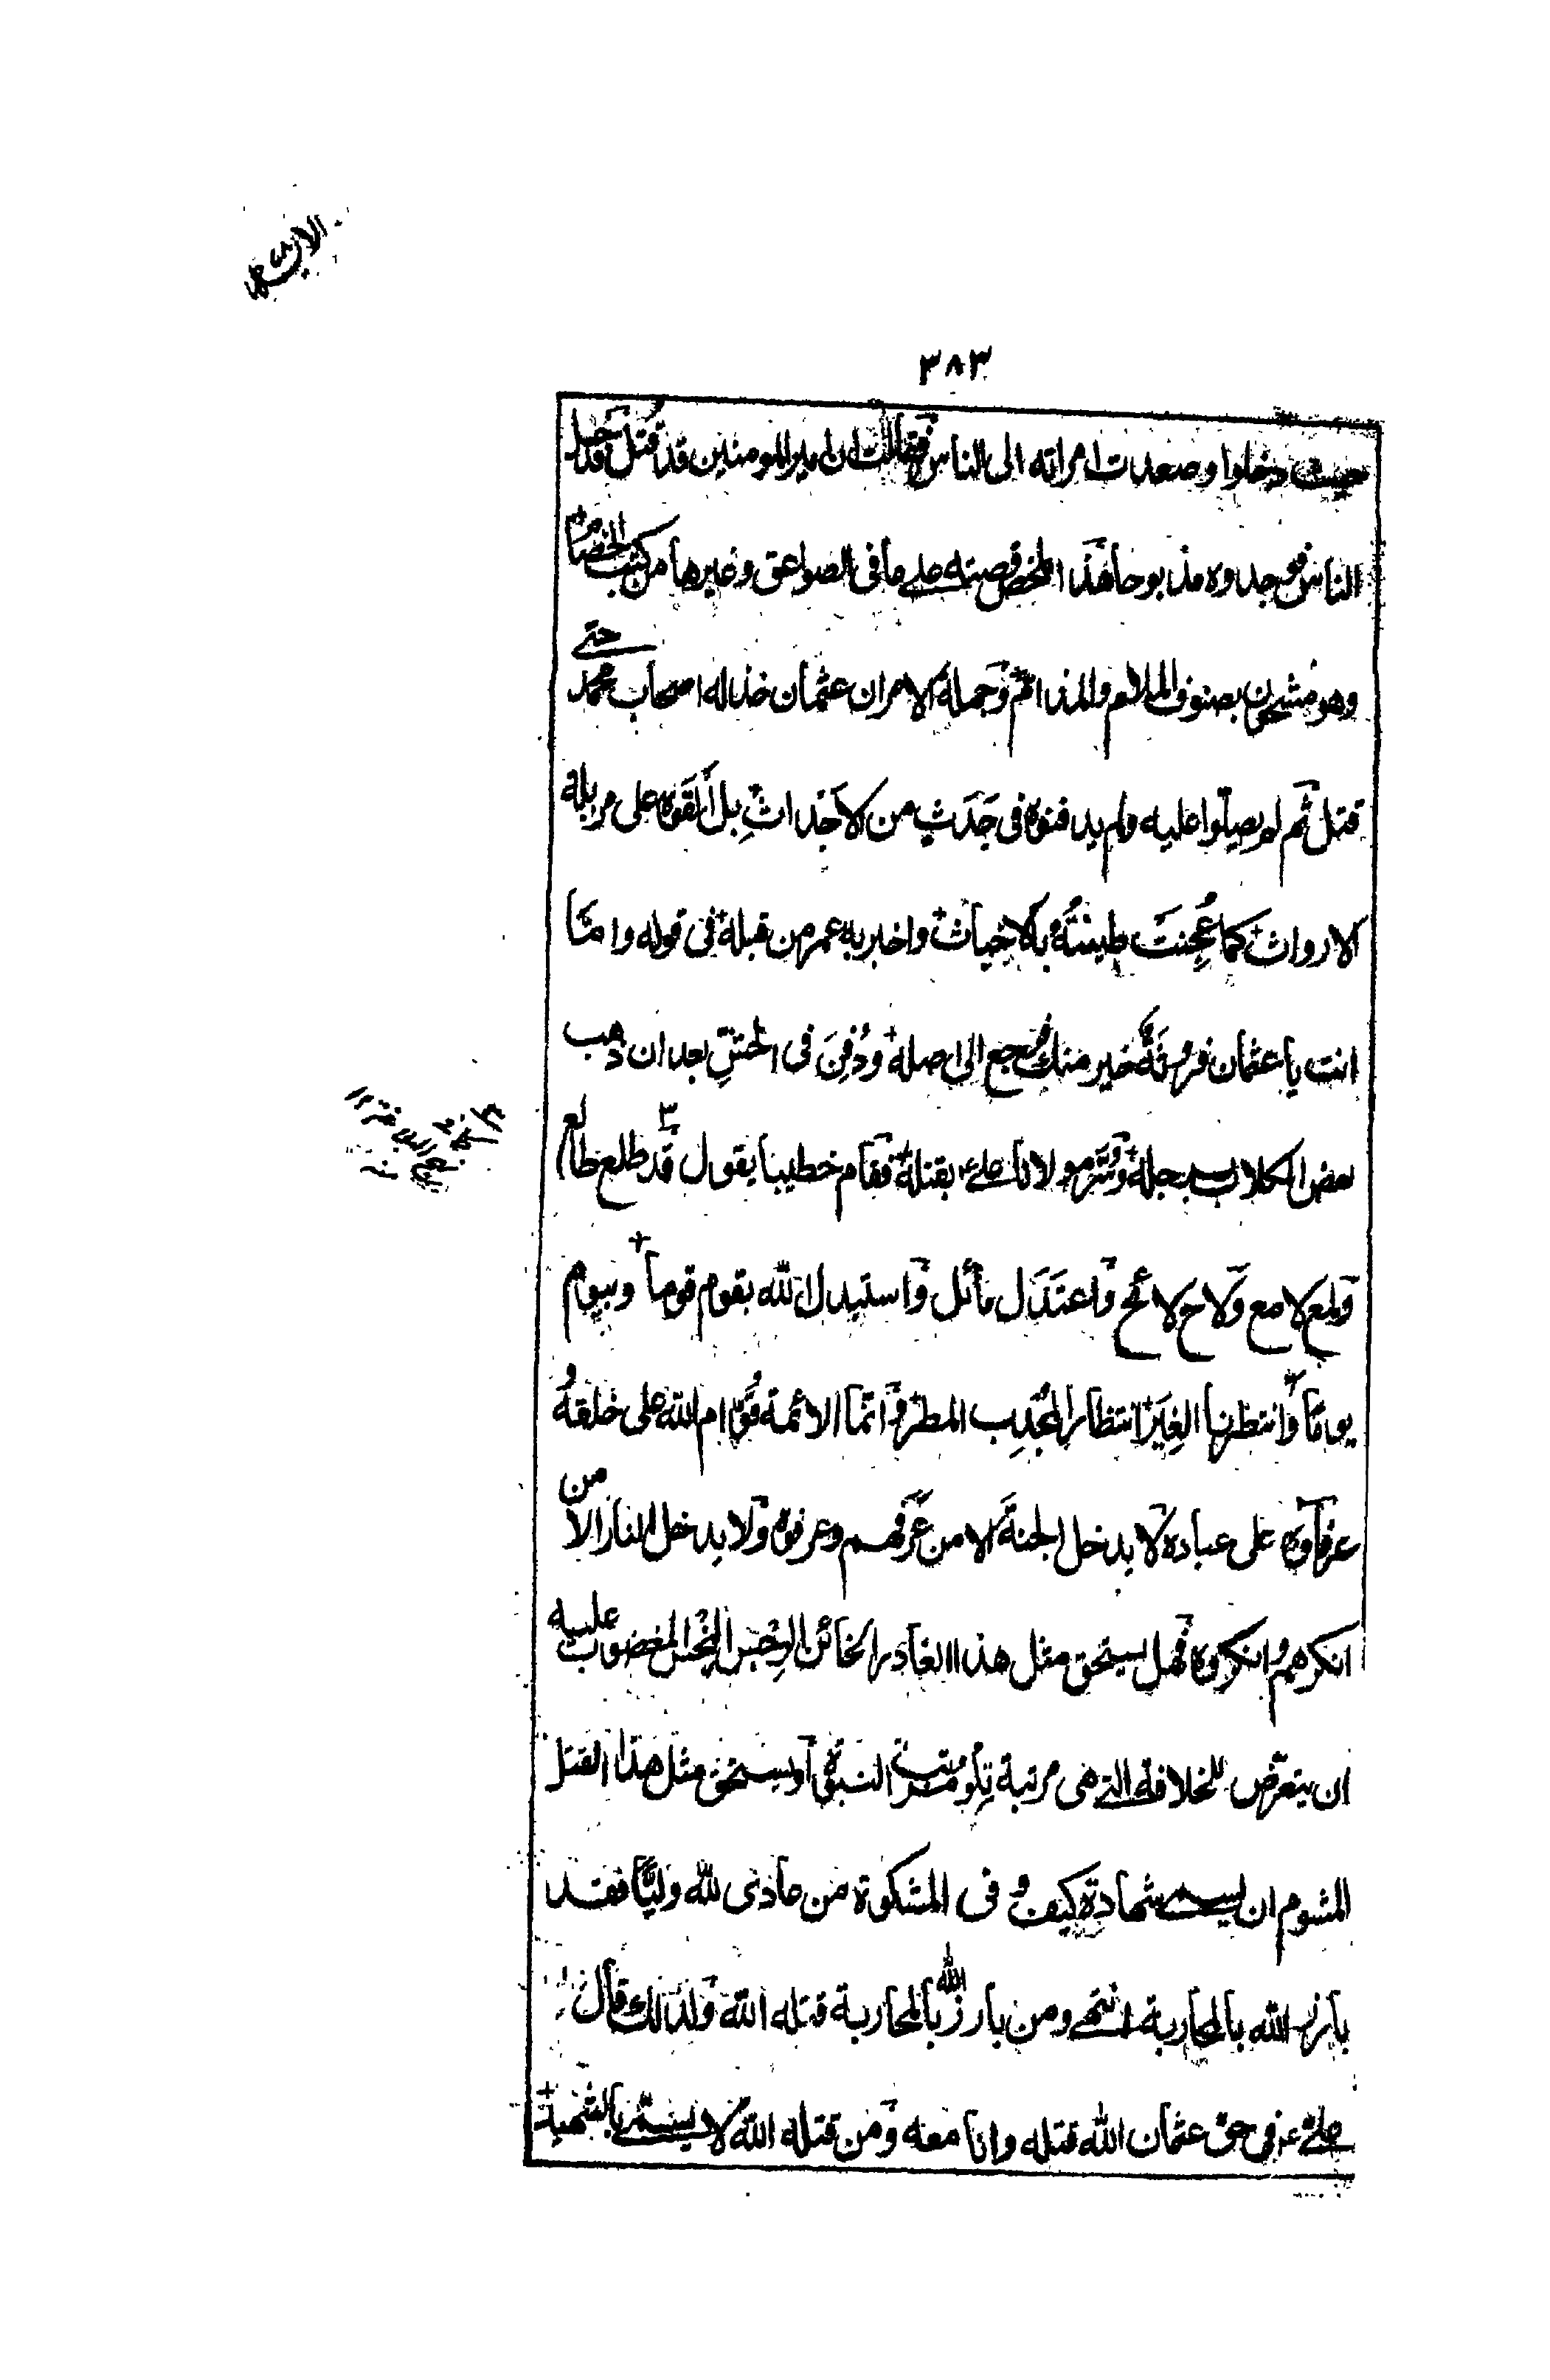 ٣٨٣
حيث دخلوا وصعدت امراته الى الناس فقالت ان امير المومنين قد قتل فدخل
الناس فوجدوه مذبوحا هذا ملخص قصته على ما فى الصواعق وغيرها من كتب الخصام
وهو مشحون بصنوف الملام والمذام وجملة الامر ان عثمان خذله اصحاب محمد حتى
قتل ثم لم يصلوا عليه ولم يدفنوه فى جَدَثٍ من الاجداثِ بل القَوه على مزبلة
الارواث كما عُجِنَت طينتُهُ بالاخباث واخبر به عمر من قبله فى قوله وامّا
انت يا عثمان فروثَةٌ خير منك فرجع الى اصله ودُفِنَ فى الحشِّ بعد ان ذهب
بعض الكلاب برجله وسُرّ مولانا على بقتله فقام خطيبا يقول قد طلع طالع
ولمع لامع ولاح لائح واعتَدَل مائل واستبدل الله بقوم قوما وبيوم
يوما وانتظرنا الغِيَر انتظار المُجدِب المطر وانّما الائمة قُوّام الله على خلقه
وعرفاؤه على عباده لا يدخل الجنةَ الا من عَرَفهم وعرفوه ولا يدخل النار الا من
انكرهم وانكروه فهل يستحق مثل هذا الغادر الخائن الرِجس النجس المغضوب عليه
ان يتعرّض للخلافة التى هى مرتبة تِلو مرتبة النبوة او يستحق مثل هذا القتل
المشوم ان يسمى شهادة كيف و فى المشكوة من عادى لله وليًّا فقد
بارز الله بالمحاربة انتهى ومن بارز الله بالمحاربة قتله الله ولذالك قال
على ع فى حق عثمان الله قتله وانا معه ومن قتله الله لا يسمى بالشهيد